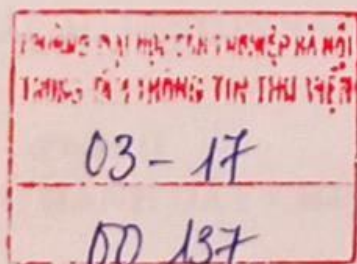 TRƯỜNG ĐẠI HỌC CÔNG NGHIỆP HÀ NỘI
TRUNG TÂM THÔNG TIN THƯ VIỆN
03 - 17
00 137